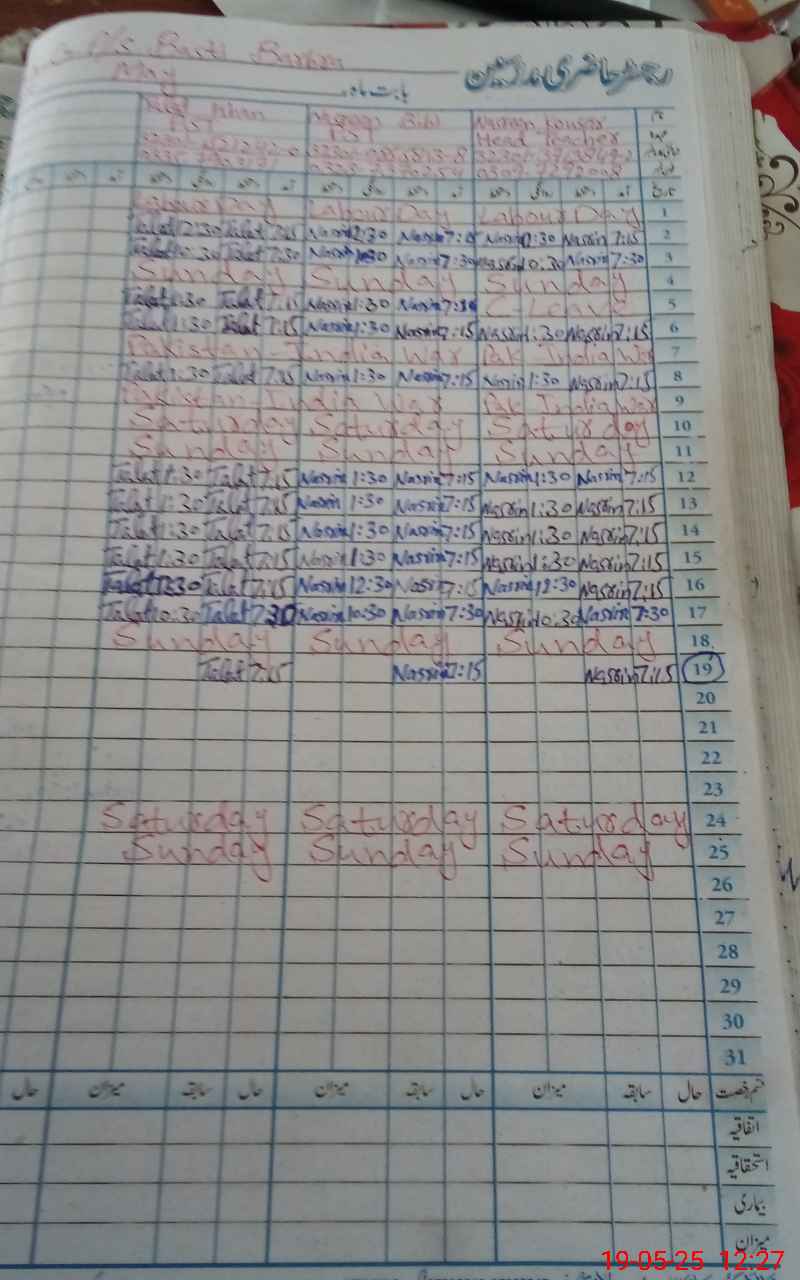 Basti
رجسٹر حاضری مدرسین
May
بابت ماہ
Khan Bibi Nasreen Kousar
PST Head Teacher
Labour Day Labour Day Labour Day 1
Talat 12:30 Talat 7:15 Nasrin 12:30 Nasrin 7:15 Nasrin 12:30 Nasrin 7:15 2
Talat 10:30 Talat 7:30 Nasrin 10:30 Nasrin 7:30 Nasrin 10:30 Nasrin 7:30 3
Sunday Sunday Sunday 4
Talat 1:30 Talat 7:15 Nasrin 1:30 Nasrin C-Leave 5
Talat 1:30 Talat 7:15 Nasrin 1:30 Nasrin 7:15 Nasrin 1:30 Nasrin 7:15 6
Pakistan-India War Pak India War 7
Talat 1:30 Talat 7:15 Nasrin 1:30 Nasrin 7:15 Nasrin 1:30 Nasrin 7:15 8
Pakistan India War Pak India War 9
Saturday Saturday Saturday 10
Sunday Sunday Sunday 11
Talat 1:30 Talat 7:15 Nasrin 1:30 Nasrin 7:15 Nasrin 1:30 Nasrin 7:15 12
Talat 1:30 Talat 7:15 Nasrin 1:30 Nasrin 7:15 Nasrin 1:30 Nasrin 7:15 13
Talat 1:30 Talat 7:15 Nasrin 1:30 Nasrin 7:15 Nasrin 1:30 Nasrin 7:15 14
Talat 1:30 Talat 7:15 Nasrin 1:30 Nasrin 7:15 Nasrin 1:30 Nasrin 7:15 15
Talat 12:30 Talat 7:15 Nasrin 12:30 Nasrin 7:15 Nasrin 12:30 Nasrin 7:15 16
Talat 10:30 Talat 7:30 Nasrin 10:30 Nasrin 7:30 Nasrin 10:30 Nasrin 7:30 17
Sunday Sunday Sunday 18
Talat 7:15 Nasrin 7:15 Nasrin 7:15 19
20
21
22
23
Saturday Saturday Saturday 24
Sunday Sunday Sunday 25
26
27
28
29
30
31
قسم رخصت حال سابقہ میزان حال سابقہ میزان حال سابقہ میزان حال
اتفاقیہ
استحقاقیہ
بیماری
میزان
19-05-25 12:27